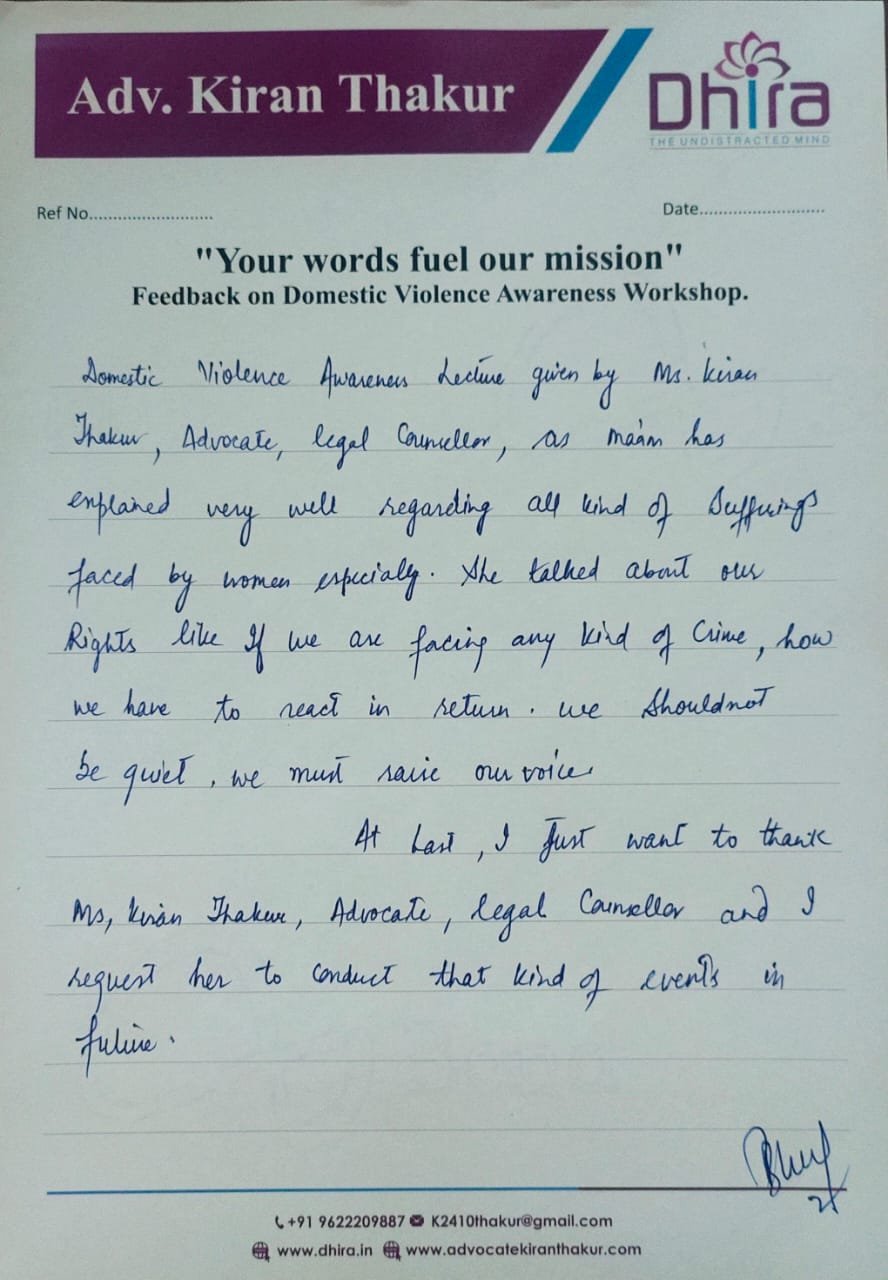 Adv. Kiran Thakur
Dhira
THE UNDISTRACTED MIND
Ref No..........................
Date..........................
"Your words fuel our mission"
Feedback on Domestic Violence Awareness Workshop.
Domestic Violence Awareness Lecture given by Ms. Kiran
Thakur, Advocate, legal Councellor, as ma'am has
explained very well regarding all kind of Sufferings
faced by women especialy. She talked about our
Rights like If we are facing any kind of Crime, how
we have to react in return. we Shouldnot
be quiet, we must raise our voice
At Last, I Just want to thank
Ms, Kiran Thakur, Advocate, legal Counsellor and I
request her to conduct that kind of events in
future.
+91 9622209887 K2410thakur@gmail.com
www.dhira.in www.advocatekiranthakur.com